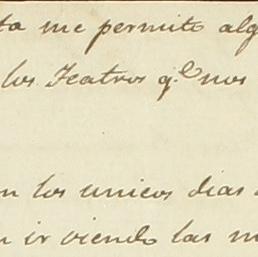 ta me permite alg
los Teatros q.e nos
on los unicos dias
n ir viendo las m